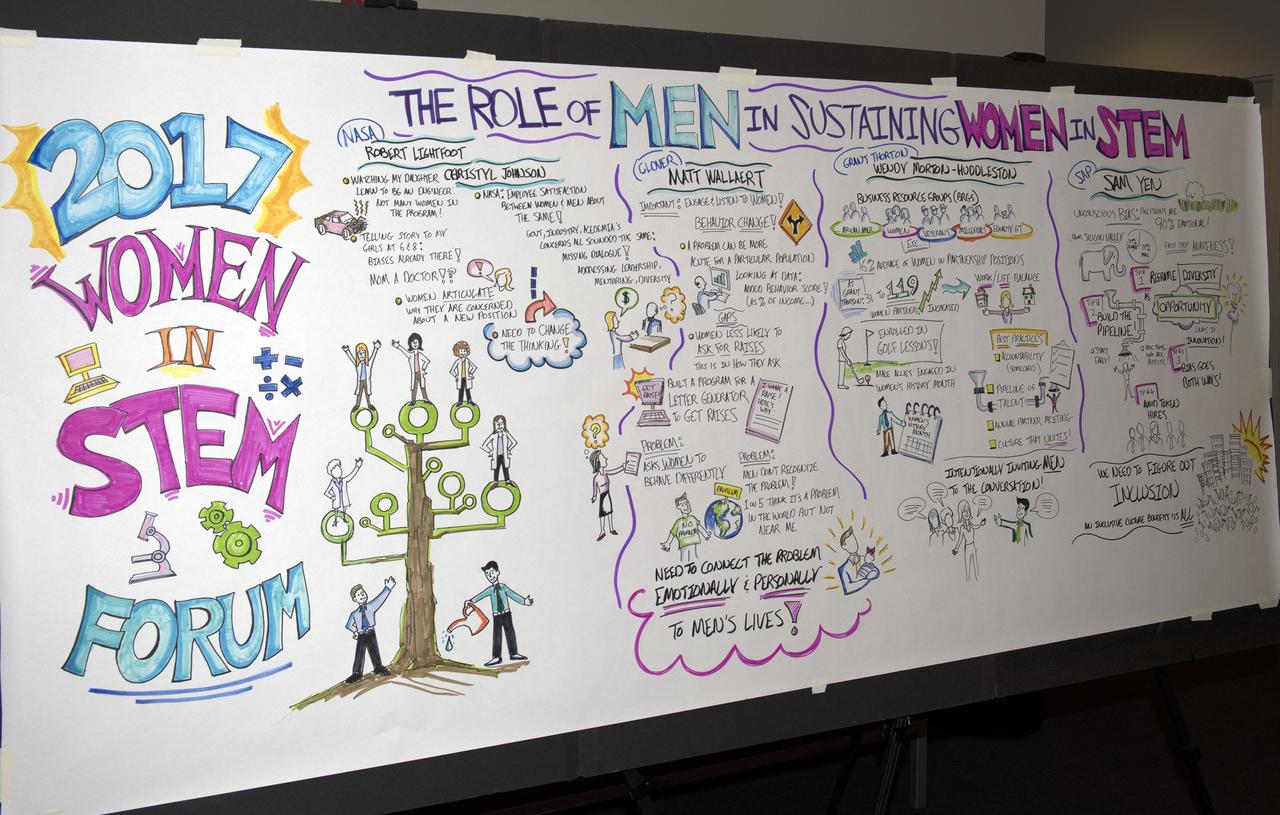 2017
WOMEN
IN
STEM
FORUM
THE ROLE OF MEN IN SUSTAINING WOMEN IN STEM
NASA
ROBERT LIGHTFOOT
CHRISTYL JOHNSON
WATCHING MY DAUGHTER
LEARN TO BE AN ENGINEER!
NOT MANY WOMEN IN
THE PROGRAM!
TELLING STORY TO MY
GIRLS AT 6 & 8:
BIASES ALREADY THERE!
MOM A DOCTOR!?
NASA: EMPLOYEE SATISFACTION
BETWEEN WOMEN & MEN ABOUT
THE SAME!
GOVT, INDUSTRY, ACEDEMIA'S
CONCERNS ALL SOUNDED THE SAME:
MISSING DIALOGUE!
ADDRESSING LEADERSHIP,
MENTORING, DIVERSITY
WOMEN ARTICULATE
WHY THEY ARE CONCERNED
ABOUT A NEW POSITION
NEED TO CHANGE
THE THINKING!
CLOVER
MATT WALLAERT
IMPORTANT: ENGAGE & LISTEN TO WOMEN!
BEHAVIOR CHANGE!
A PROBLEM CAN BE MORE
ACUTE FOR A PARTICULAR POPULATION
LOOKING AT DATA:
ADDED BEHAVIOR SCORE!
(AS % OF INCOME...)
GAPS
WOMEN LESS LIKELY TO
ASK FOR RAISES
THIS IS IN HOW THEY ASK
GET
RAISE!
BUILT A PROGRAM FOR A
LETTER GENERATOR
TO GET RAISES
I WANT A
RAISE!
HERE'S
WHY:
PROBLEM:
ASKS WOMEN TO
BEHAVE DIFFERENTLY
PROBLEM:
MEN DON'T RECOGNIZE
THE PROBLEM!
1 IN 5 THINK IT'S A PROBLEM
IN THE WORLD BUT NOT
NEAR ME.
PROBLEM
NO
PROBLEM
NEED TO CONNECT THE PROBLEM
EMOTIONALLY & PERSONALLY
TO MEN'S LIVES!
GRANT THORTON
WENDY MORTON-HUDDLESTON
BUSINESS RESOURCE GROUPS (BRGS)
AFRICAN AMER.
WOMEN
VETERANS
MILLENNIALS
EQUALITY GT
ETC...
16% AVERAGE OF WOMEN IN PARTNERSHIP POSITIONS
AT
GRANT
THORTON:
TO 119
WOMEN PARTNERS
INCREASED
WORK/LIFE BALANCE
ENROLLED IN
GOLF LESSONS!
MALE ALLIES ENGAGED IN
WOMEN'S HISTORY MONTH
WOMEN'S
HISTORY
MONTH
BEST PRACTICES
ACCOUNTABILITY
(SCORECARD)
PIPELINE OF
TALENT
ANNUAL PARTNER MEETING
CULTURE THAT UNITES!
INTENTIONALLY INVITING MEN
TO THE CONVERSATION!
SAP
SAM YEN
UNCONSCIOUS BIAS: DECISIONS ARE
90% EMOTIONAL!
FROM SILICON VALLEY
FIRST STEP AWARENESS!
REFRAME DIVERSITY
AS
OPPORTUNITY
LEADS TO
INNOVATION!
BUILD THE
PIPELINE!
START
EARLY!
BIAS GOES
BOTH WAYS!
AVOID TOKEN
HIRES
WE NEED TO FIGURE OUT
INCLUSION
AN INCLUSIVE CULTURE BENEFITS US ALL